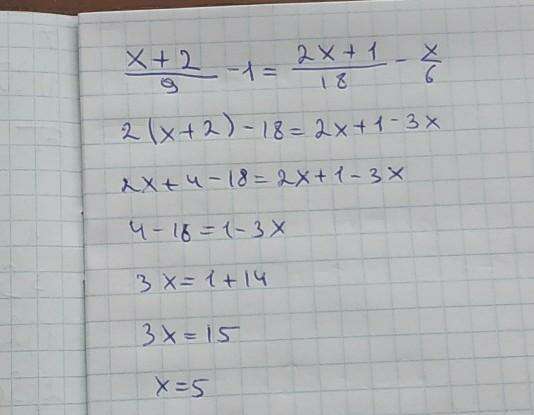 (x+2)/9 -1 = (2x+1)/18 - x/6
2(x+2)-18=2x+1-3x
2x+4-18=2x+1-3x
4-18=1-3x
3x=1+14
3x=15
x=5